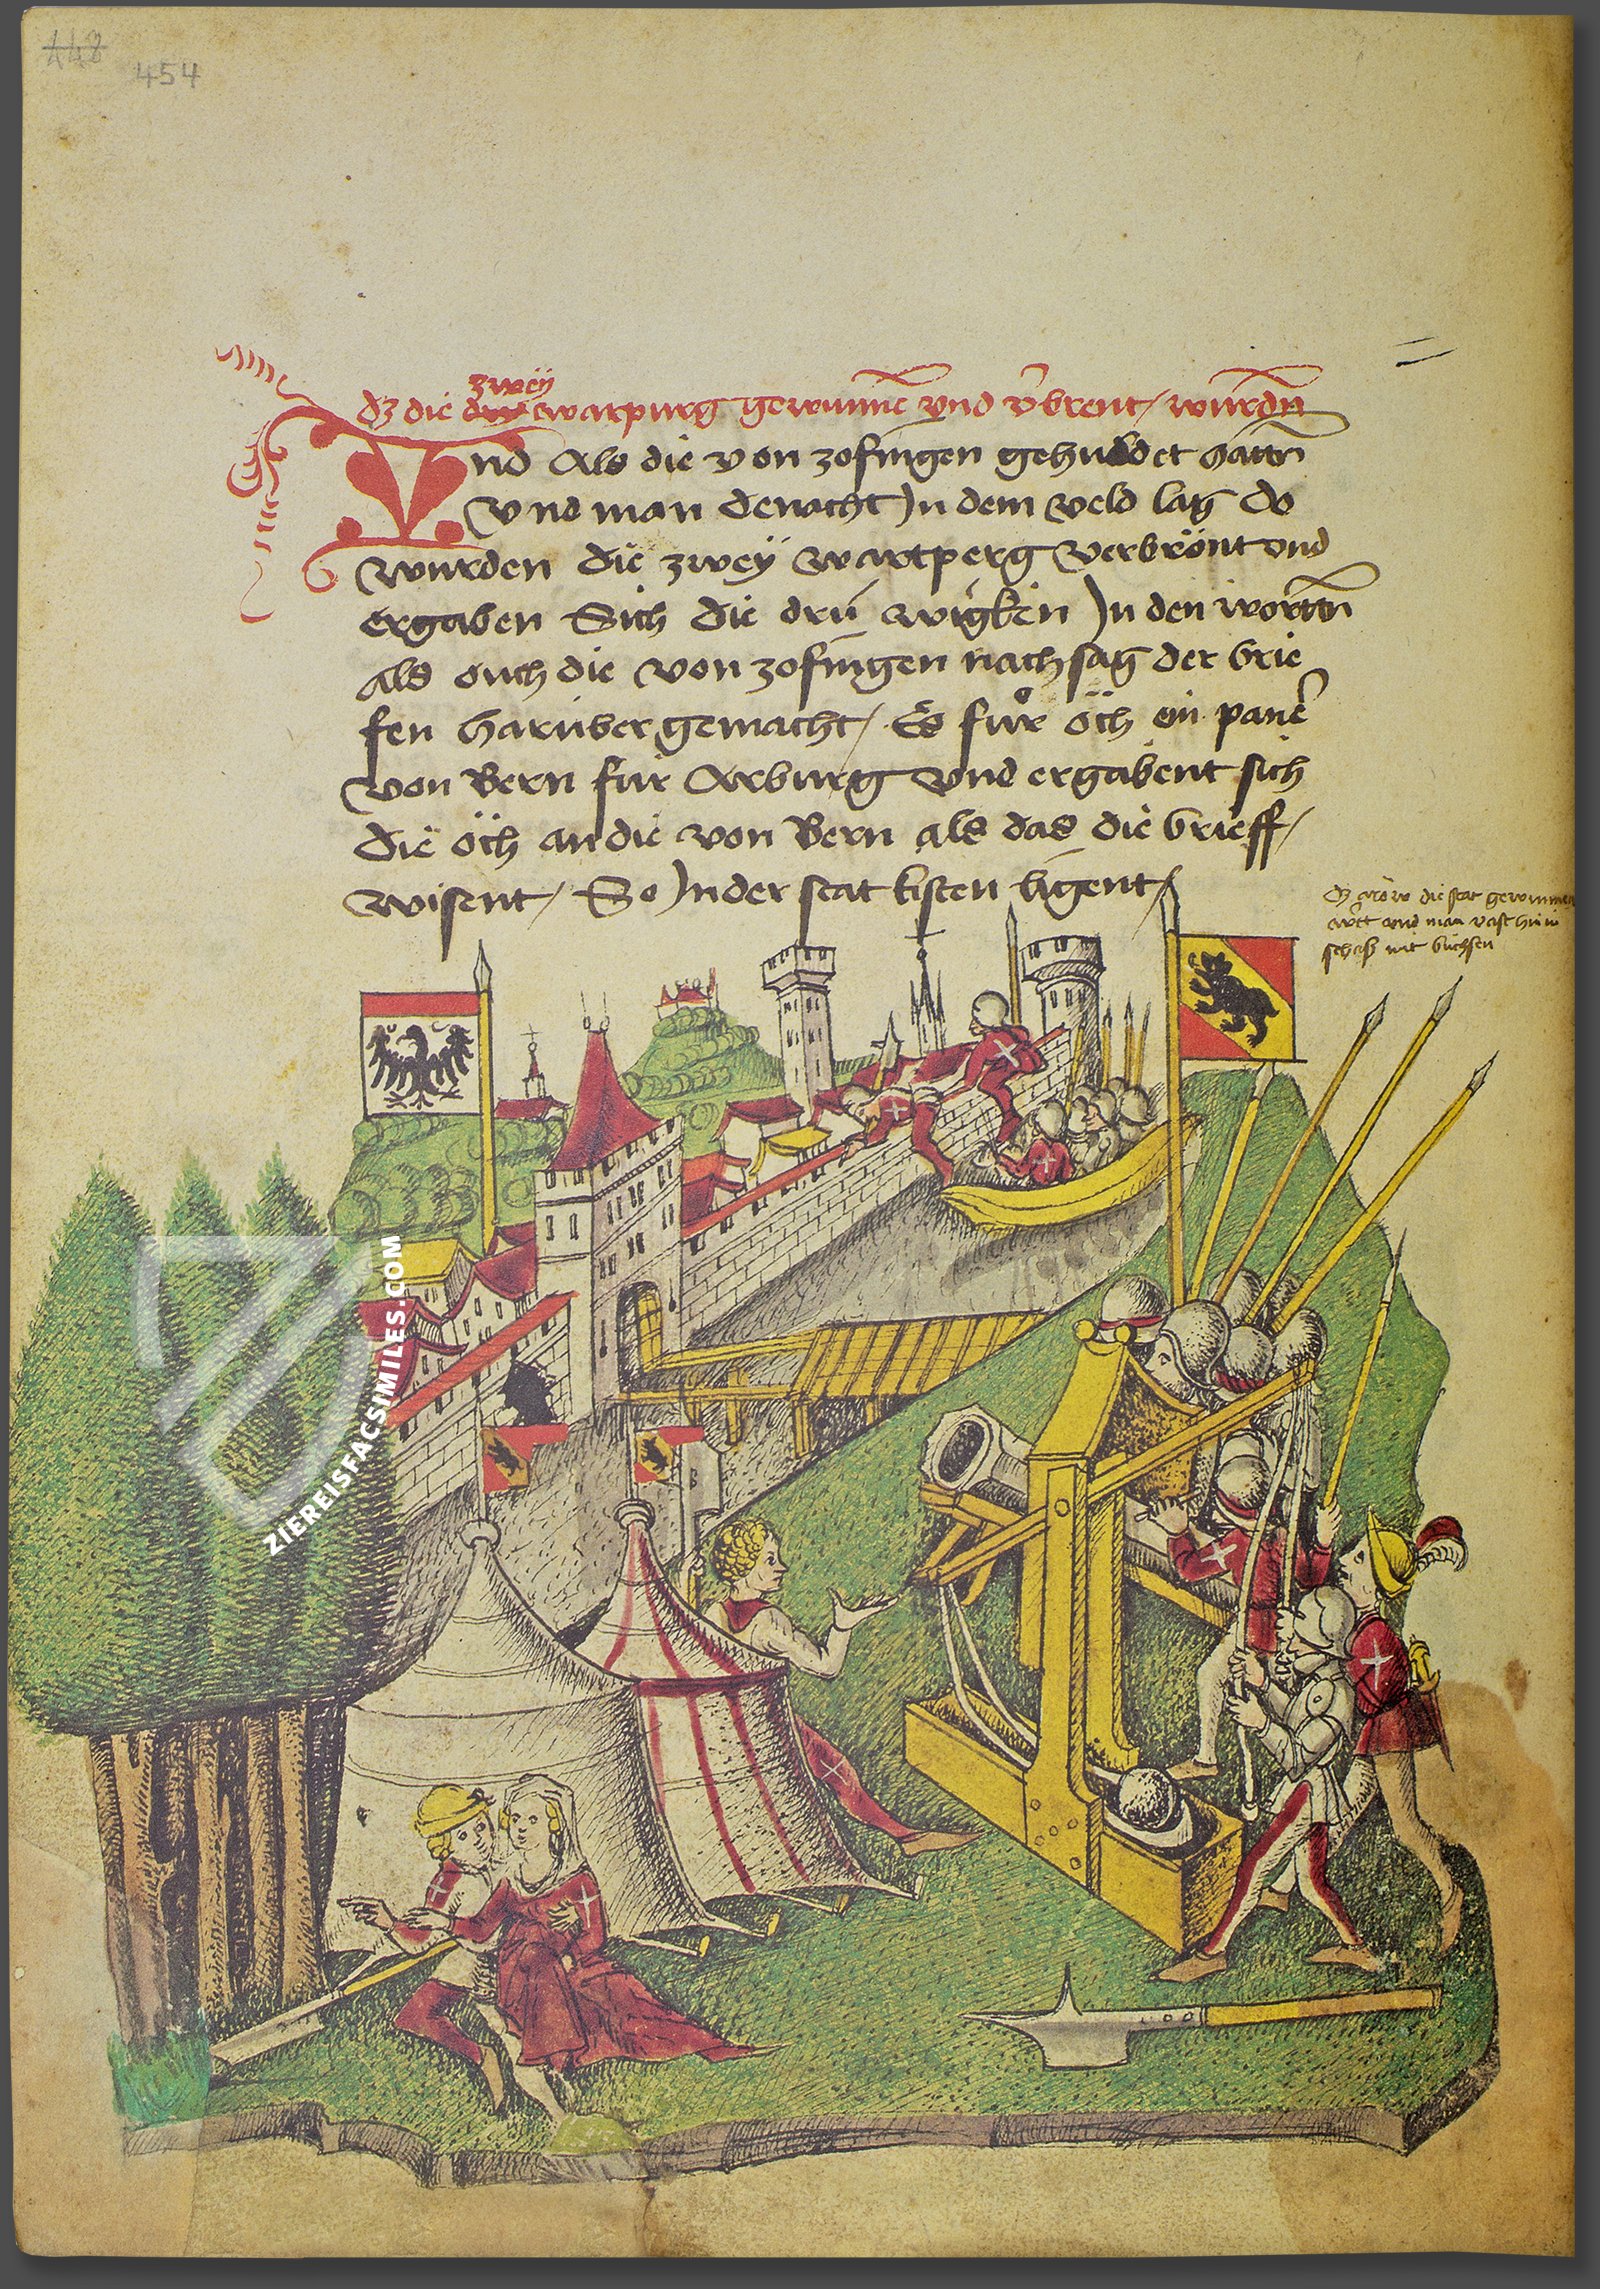 448
454
zweÿ
dz die warpurg gewunnē vnd v̄brent / wurdn̄
Vnd Als die von zofingen gehuldet hattn̄
vnd man denacht Jn dem veld lag do
wurden die zweÿ wartperg verbrönt vnd
ergaben Sich die drü wigken Jn den wortn̄
als ouch die von zofingen nach sag der brie
fen harüber gemacht / Es fuͦr öch ein panē
von Bern für Arburg vnd ergabent sich
die öch an die von Bern als das die brieff /
wisent / So Jn der stat kisten ligent /
dz die stat gewunnen
wart und man vast hin in
schoß mit büchsen
ZIEREISFACSIMILES.COM